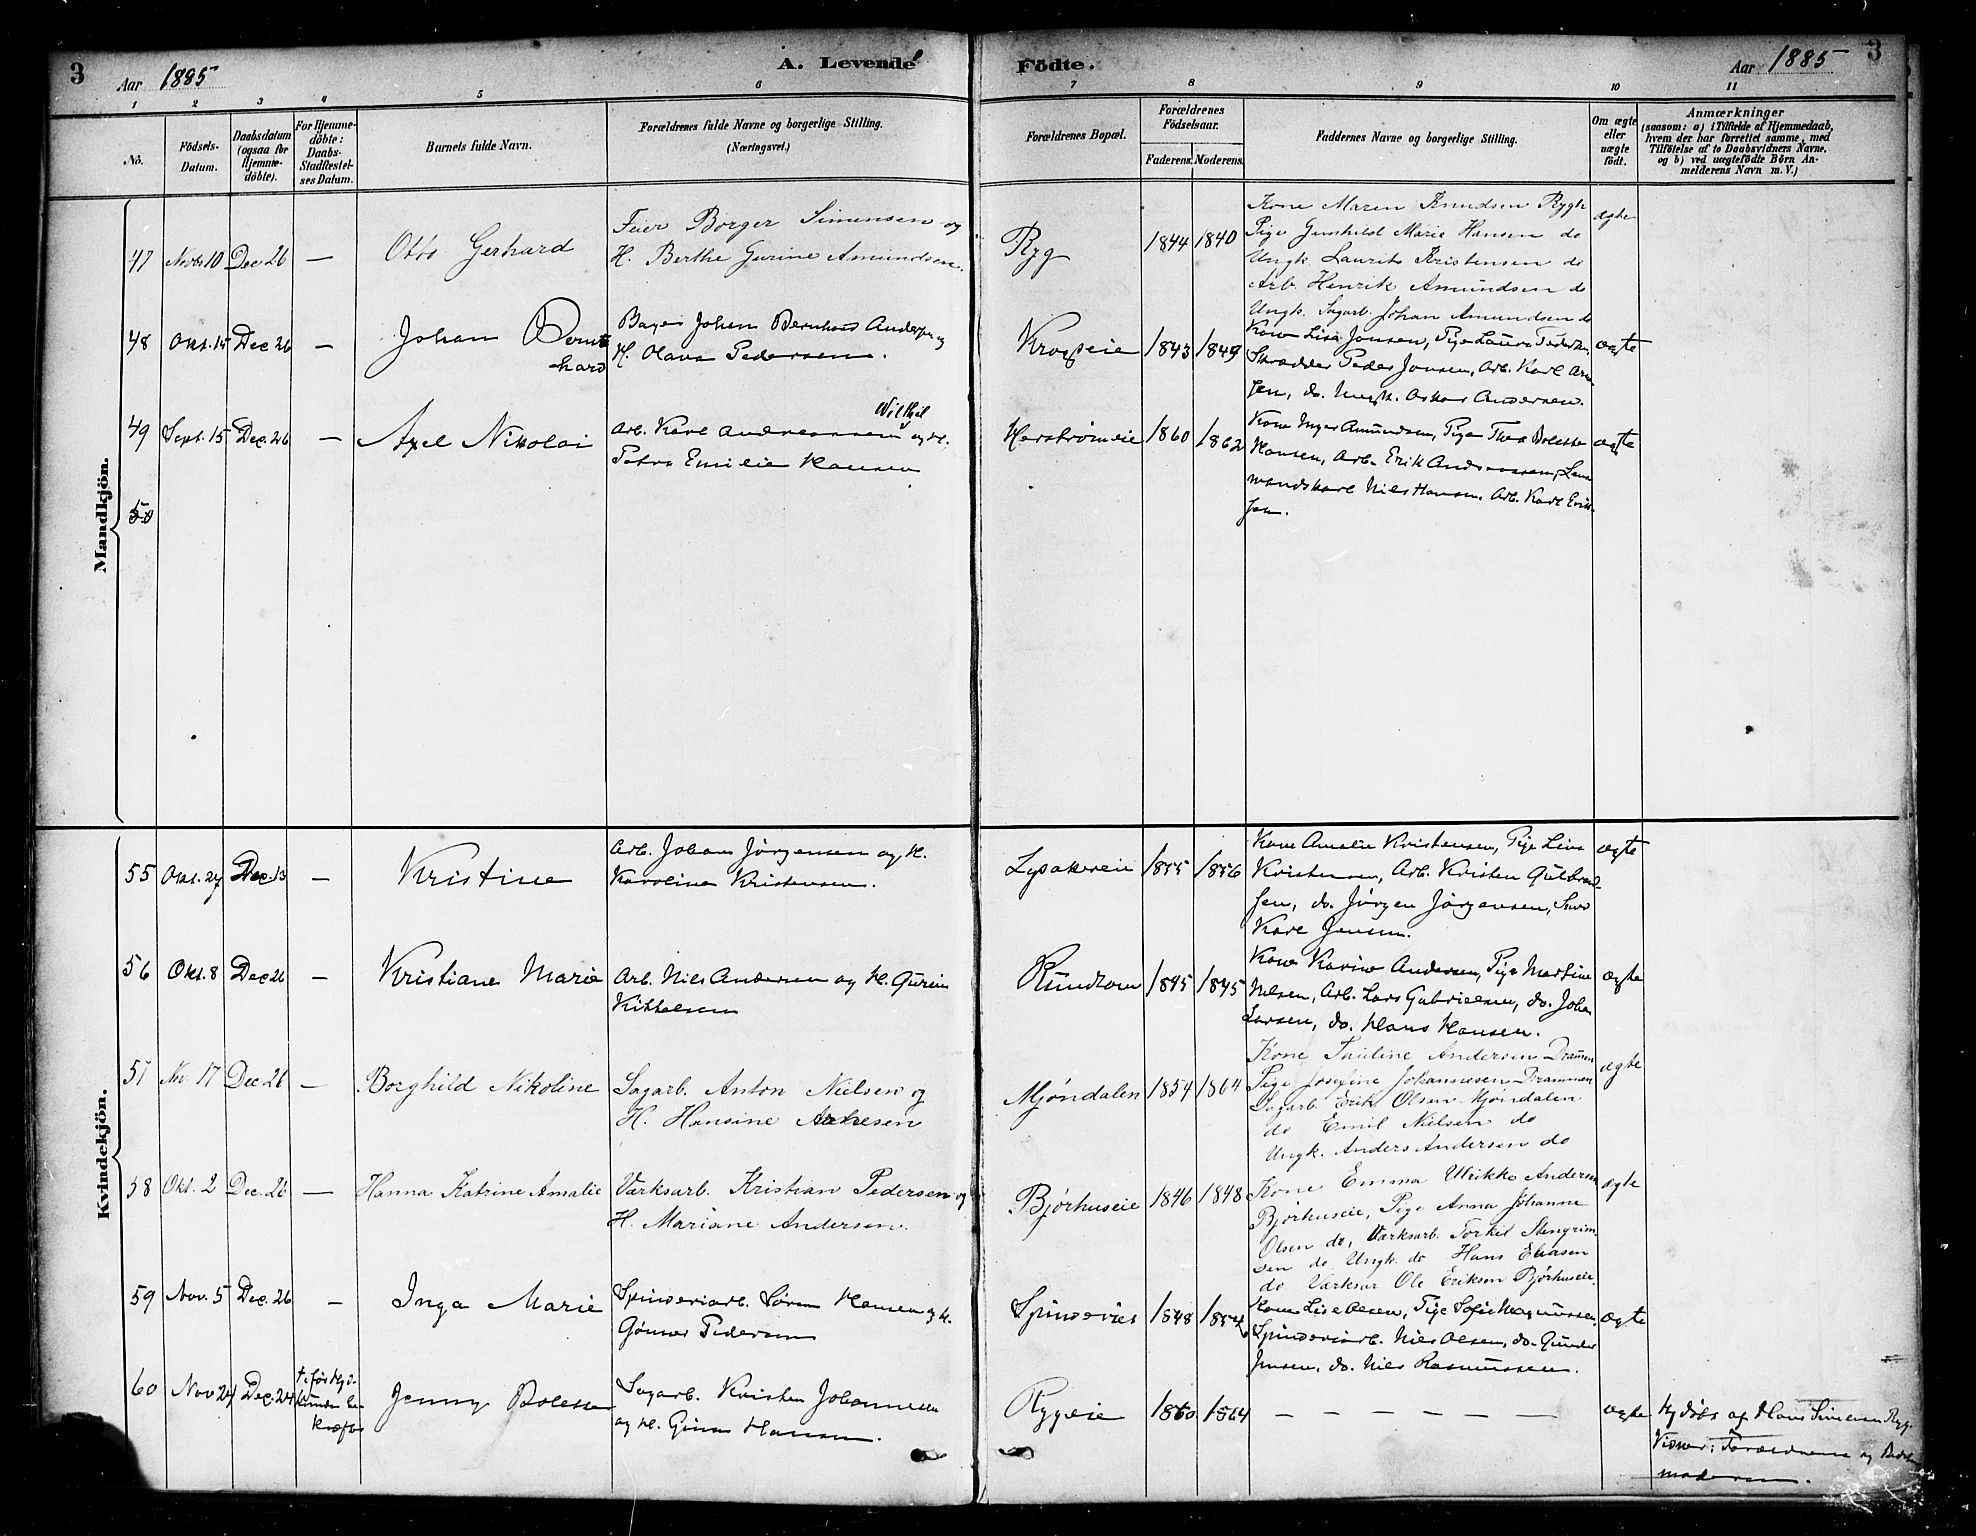 3 Aar 1885 A. Levende Födte. Aar 1885 3
1 2 3 4 5 6 7 8 9 10 11
No.
Födsels-
Datum.
Daabsdatum
(ogsaa for
Hjemme-
döbte).
For Hjemme-
döbte:
Daabs-
Stadfæstel-
ses Datum.
Barnets fulde Navn.
Forældrenes fulde Navne og borgerlige Stilling.
(Næringsvei.)
Forældrenes Bopæl.
Forældrenes
Födselsaar.
Faderens. Moderens.
Faddernes Navne og borgerlige Stilling.
Om ægte
eller
uægte
födt.
Anmærkninger
(saasom: a) i Tilfælde af Hjemmedaab,
hvem der har forrettet samme, med
Tilföielse af to Daabsvidners Navne,
og b) ved uægtefödte Börn An-
melderens Navn m. V.)
Mandkjön.
47 Novbr 10 Dec 26 — Otto Gerhard
Feier Borger Simensen og
H. Berthe Gurine Amundsen.
Ryg 1844 1840
Kone Maren Knudsen Rygh
Pige Gunhild Marie Hansen do
Ungk. Laurits Kristensen do
Arb. Henrik Amundsen do
Ungk. Sagarb. Johan Amundsen do
ægte
48 Okt. 15 Dec 26 — Johan Bern
hard
Bager Johan Bernhard Andersen og
H. Olava Pedersen.
Krogseie 1843 1849
Kone Lise Jonsen, Pige Laura Pedersen,
Skrædder Peder Jonsen, Arb. Karl Arn
sen, do. Ungk. Oskar Andersen.
ægte
49 Sept. 15 Dec. 26 — Axel Nikolai
Arb. Karl Andreassen og H.
Petra Emilie Hansen
Herstrømeie 1860 1862
Kone Inger Amundsen, Pige Thea Bolette
Hansen, Arb. Erik Andreassen, Len
mandskarl Nils Hansen, Arb. Karl Erik-
sen.
ægte
50
Kvindekjön.
55 Okt. 27 Dec. 13 — Kristine
Arb. Johan Jörgensen og H.
Karoline Kristensen.
Lysakereie 1855 1856
Kone Amalie Kristensen, Pige Lina
Kristensen, Arb. Kristen Gulbrand-
sen, do. Jörgen Jörgensen,
Karl Jensen.
ægte
56 Okt. 8 Dec 26 — Kristiane Marie
Arb. Nils Andersen og H. Gurine
Kittelsen
Rundtom 1845 1845
Kone Karine Andersen, Pige Martine
Nilsen, Arb. Lars Gabrielsen, do. Johan
Larsen, do. Hans Hansen.
ægte
57 Nov 17 Dec 26 — Borghild Nikoline
Sagarb. Anton Nielsen og
H. Hansine Arnesen
Mjøndalen 1854 1864
Kone Pauline Andersen Drammen
Pige Josefine Johannesen Drammen
Sagarb. Erik Olsen Mjøndalen
do Emil Nielsen do
Ungk. Anders Andersen do
ægte
58 Okt. 2 Dec. 26 — Hanna Katrine Amalie
Værksarb. Kristian Pedersen og
H. Mariane Andersen.
Bjørhuseie 1846 1848
Kone Emma Ulrikke Andersen
Bjørhuseie, Pige Anna Johanne
Olsen do, Værksarb. Torkil Stengrim
sen do Ungk. do Hans Eliasen
do Værksar Ole Eriksen Bjørhuseie.
ægte
59 Nov. 5 Dec. 26 — Inga Marie
Spinderiarb. Sören Hansen og H.
Gunner Pedersen
Spinderiet 1848 1854
Kone Lise Olsen, Pige Sofie Magnussen,
Spinderiarb. Nils Olsen, do. Gunder
Jensen, do. Nils Rasmussen.
ægte
60 Nov 24 Dec. 24
† før Hjd.
kunde be
kræftes
Jenny Bolette
Sagarb. Kristen Johannessen
og H. Gina Hansen.
Rygeie 1860 1864
— — — — — —
ægte
Hjdöbt af Hans Simensen Ryg.
Vidner: Forældrene og Bedste
moderen.